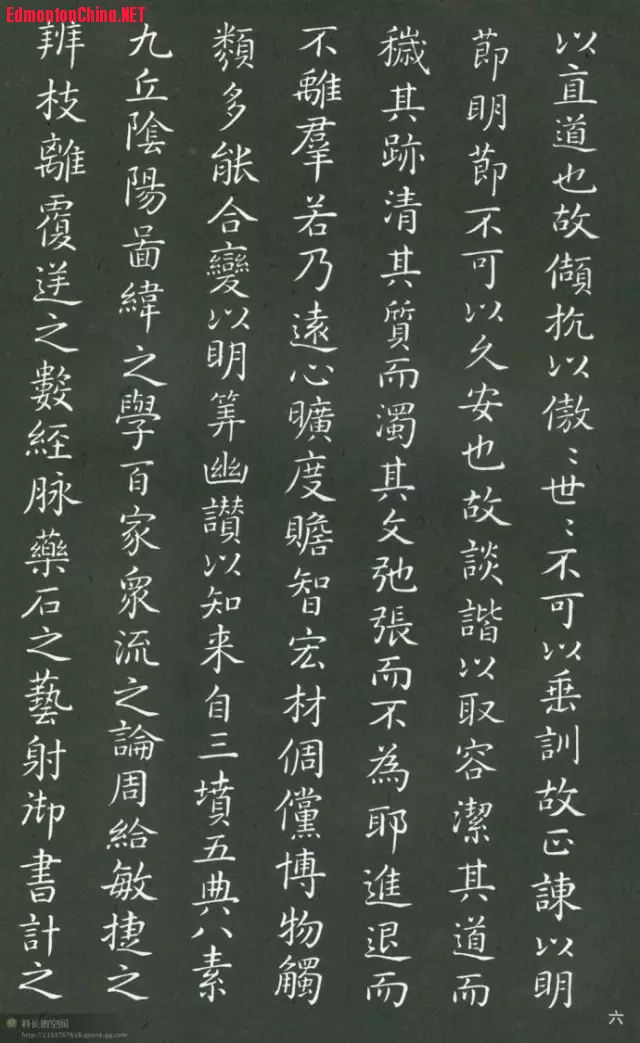 EdmontonChina.NET
以直道也故傾抗以傲〻世〻不可以垂訓故正諫以明
莭明莭不可以久安也故談諧以取容潔其道而
穢其跡清其質而濁其文弛張而不為耶進退而
不離羣若乃遠心曠度贍智宏材倜儻博物觸
類多能合變以明筭幽讃以知来自三墳五典八素
九丘陰陽啚緯之學百家衆流之論周給敏捷之
辨枝離覆逆之數經脉藥石之藝射御書計之
六
科长的空间